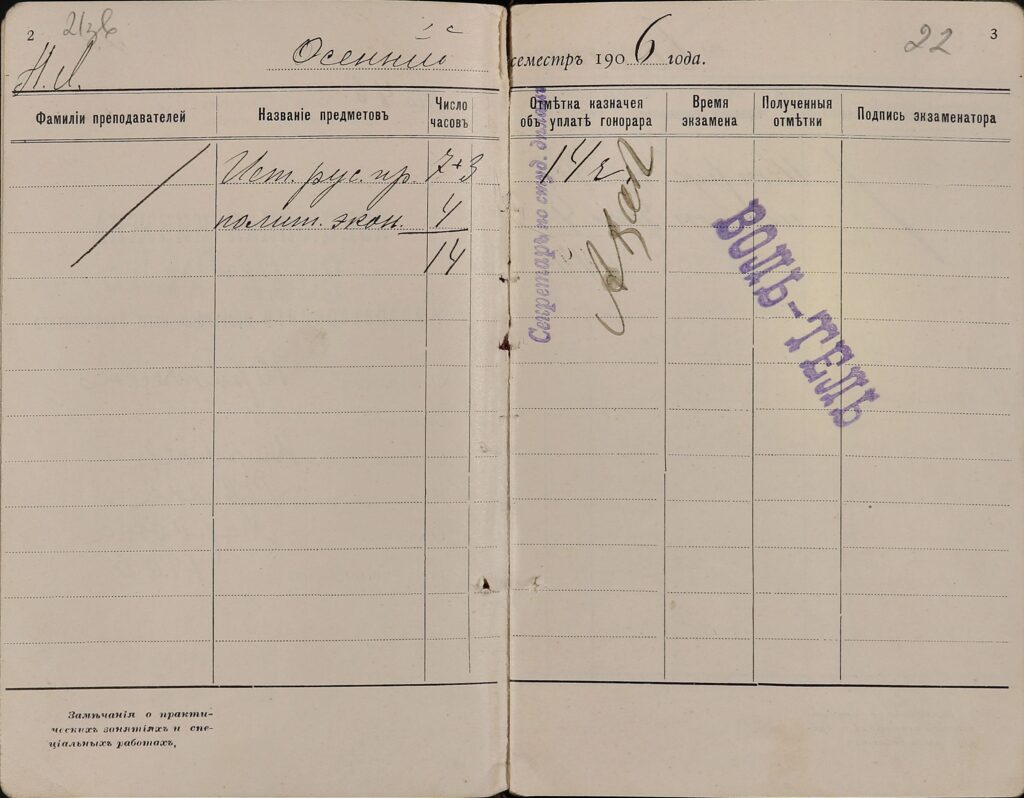 2
Осенній семестръ 1906 года.
22 3
Н. Л.
Фамиліи преподавателей Названіе предметовъ Число часовъ Отмѣтка казначея объ уплатѣ гонорара Время экзамена Полученныя отмѣтки Подпись экзаменатора
Ист. рус. пр. 7+3 14 р.
полит. экон. 4
14
Секретарь по студ. дѣламъ
ВОЛЬ-ТЕЛЬ
Замѣчанія о практи-
ческихъ занятіяхъ и спе-
ціальныхъ работахъ,